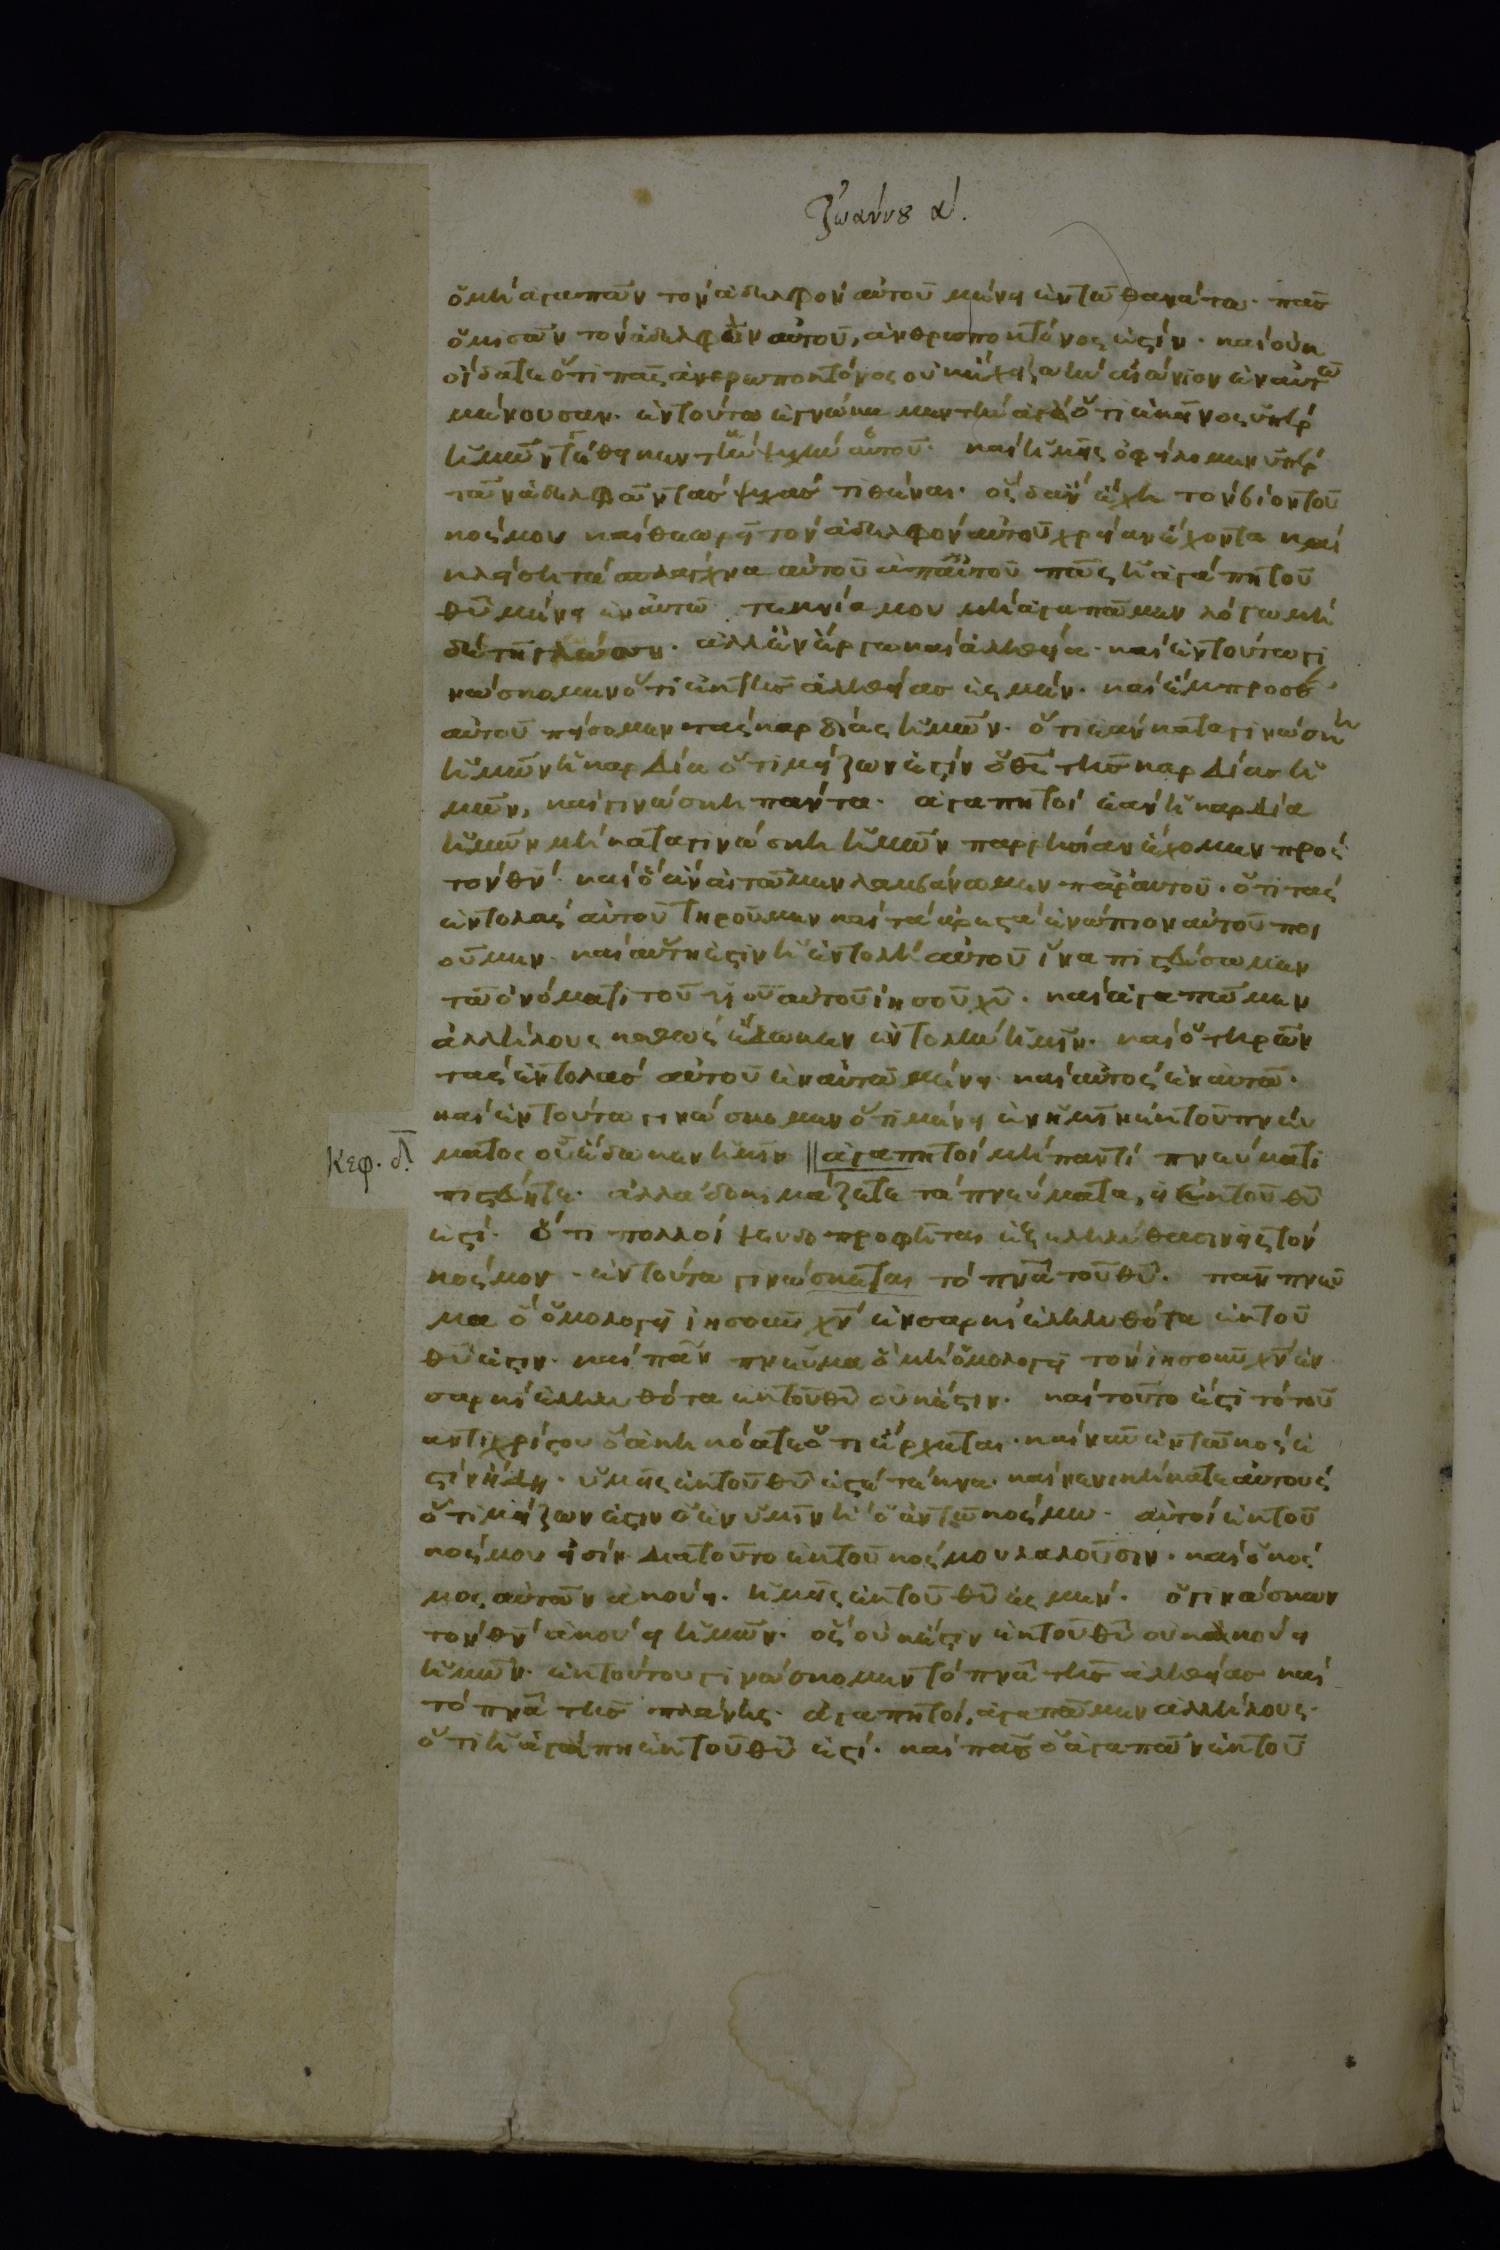 Ἰωάννου α΄.
ὁ μὴ ἀγαπῶν τὸν ἀδελφὸν αὐτοῦ μένει ἐν τῶ θανάτω. πᾶς
ὁ μισῶν τὸν ἀδελφὸν αὐτοῦ, ἀνθρωποκτόνος ἐστίν. καὶ οὐκ
οἴδατε ὅτι πᾶς ἀνθρωποκτόνος οὐκ ἔχει ζωὴν αἰώνιον ἐν αὐτῶ
μένουσαν. ἐν τούτω ἐγνώκαμεν τὴν ἀγά ὅτι ἐκεῖνος ὑπὲρ
ἡμῶν τέθηκεν τὴν ψυχὴν αὐτοῦ. καὶ ἡμεῖς ὀφείλομεν ὑπὲρ
τῶν ἀδελφῶν τὰς ψυχὰς τιθέναι. ὃς δ' ἂν ἔχη τὸν βίον τοῦ
κόσμου καὶ θεωρεῖ τὸν ἀδελφὸν αὐτοῦ χρείαν ἔχοντα καὶ
κλείση τὰ σπλάγχνα αὐτοῦ ἀπ' αὐτοῦ πῶς ἡ ἀγάπη τοῦ
θυ μένει ἐν αὐτῶ. τεκνία μου μὴ ἀγαπῶμεν λόγω μὴ
δὲ τῆ γλώσση. ἀλλ' ἐν ἔργω καὶ ἀληθεία. καὶ ἐν τούτω γι
νώσκομεν ὅτι ἐκ τῆς ἀληθείας ἐσμέν. καὶ ἔμπροσθ
αὐτοῦ πείσομεν τὰς καρδίας ἡμῶν. ὅτι ἐὰν καταγινώσκη
ἡμῶν ἡ καρδία ὅτι μείζων ἐστὶν ὁ θς τῆς καρδίας ἡ
μῶν, καὶ γινώσκη πάντα. ἀγαπητοὶ ἐὰν ἡ καρδία
ἡμῶν μὴ καταγινώσκη ἡμῶν παρρησίαν ἔχομεν πρὸς
τὸν θν. καὶ ὃ ἐὰν αἰτῶμεν λαμβάνωμεν παρ' αυτοῦ. ὅτι τὰς
ἐντολὰς αὐτοῦ τηροῦμεν καὶ τὰ ἀρεστὰ ἐνώπιον αὐτοῦ ποι
οῦμεν. καὶ αὕτη ἐστὶν ἡ ἐντολὴ αὐτοῦ ἵνα πιστεύσωμεν
τῶ ὀνόματι τοῦ υἱοῦ αὐτοῦ ἰησοῦ χυ. καὶ ἀγαπῶμεν
ἀλλήλους καθὼς ἔδωκεν ἐντολὴν ἡμῖν. καὶ ὁ τηρῶν
τὰς ἐντολὰς αὐτοῦ ἐν αὐτῶ μένει. καὶ αὐτὸς ἐν αὐτῶ.
καὶ ἐν τούτω γινώσκομεν ὅτι μένει ἐν ἡμῖν ἐκ τοῦ πνεύ
Κεφ. δ΄. ματος οὗ ἔδωκεν ἡμῖν || ἀγαπητοὶ μὴ παντὶ πνεύματι
πιστεύετε. ἀλλὰ δοκιμάζετε τὰ πνεύματα, εἰ ἐκ τοῦ θυ
ἐστί. ὅτι πολλοὶ ψευδοπροφῆται ἐξεληλύθασιν εἰς τὸν
κόσμον. ἐν τούτω γινώσκεται τὸ πνα τοῦ θυ. πᾶν πνεῦ
μα ὃ ὁμολογεῖ ἰησοῦν χν ἐν σαρκὶ ἐληλυθότα ἐκ τοῦ
θυ ἐστιν. καὶ πᾶν πνεῦμα ὃ μὴ ὁμολογεῖ τὸν ἰησοῦν χν ἐν
σαρκὶ ἐληλυθότα ἐκ τοῦ θυ οὐκ ἔστιν. καὶ τοῦτο ἐστὶ τὸ τοῦ
αντιχρίστου ὃ ἀκηκόατε ὅτι ἔρχεται. καὶ νῦν ἐν τῶ κόσ ἐ
στὶν ἤδη. ὑμεῖς ἐκ τοῦ θυ ἐστὲ τέκνα. καὶ νενικήκατε αὐτοὺς
ὅτι μείζων ἐστιν ὁ ἐν ὑμῖν ἢ ὁ ἐν τῶ κόσμω. αὐτοὶ ἐκ τοῦ
κόσμου εἰσίν. διατοῦτο ἐκ τοῦ κόσμου λαλοῦσιν. καὶ ὁ κόσ
μος αὐτῶν ἀκούει. ἡμεῖς ἐκ τοῦ θυ ἐσμέν. ὁ γινώσκων
τὸν θν ἀκούει ἡμῶν. ὃς οὐκ ἔστιν ἐκ τοῦ θυ οὐκ ἀκούει
ἡμῶν. ἐκ τούτου γινώσκομεν τὸ πνα τῆς ἀληθείας καὶ
τὸ πνα τῆς πλάνης. ἀγαπητοὶ, ἀγαπῶμεν ἀλλήλους.
ὅτι ἡ ἀγάπη ἐκ τοῦ θυ ἐστί. καὶ πᾶς ὁ ἀγαπῶν ἐκ τοῦ